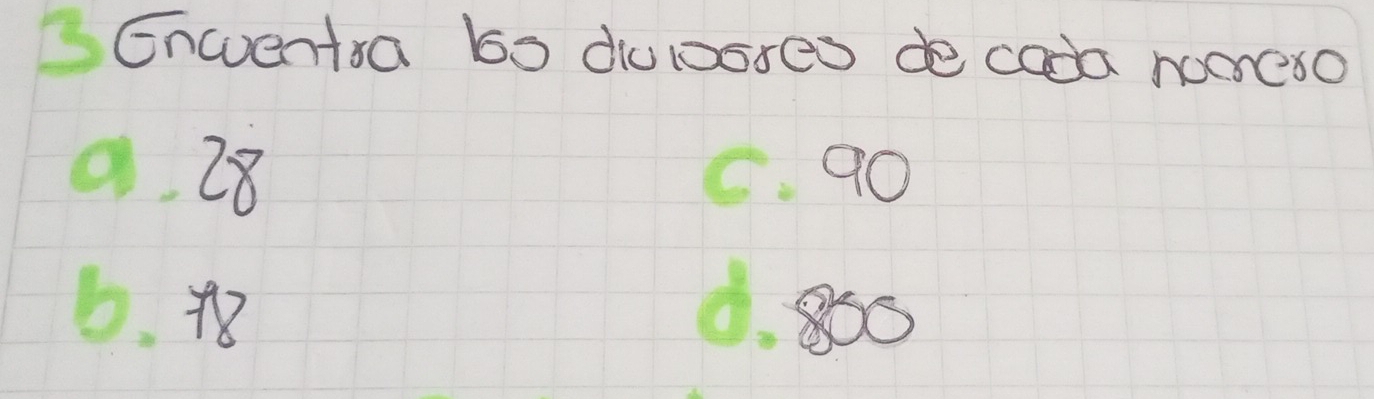 3 Encuentra los divisores de cada numero
a. 28
c. 90
b. 78
d. 800